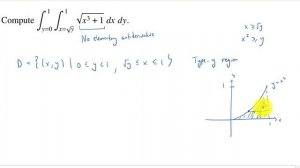 Compute ∫_{y=0}^{1} ∫_{x=√y}^{1} √(x³ + 1) dx dy.
No elementary antiderivative
x ≥ √y
x² ≥ y
D = { (x, y) | 0 ≤ y ≤ 1, √y ≤ x ≤ 1 }
Type-y region
y
1
y = x²
1
x